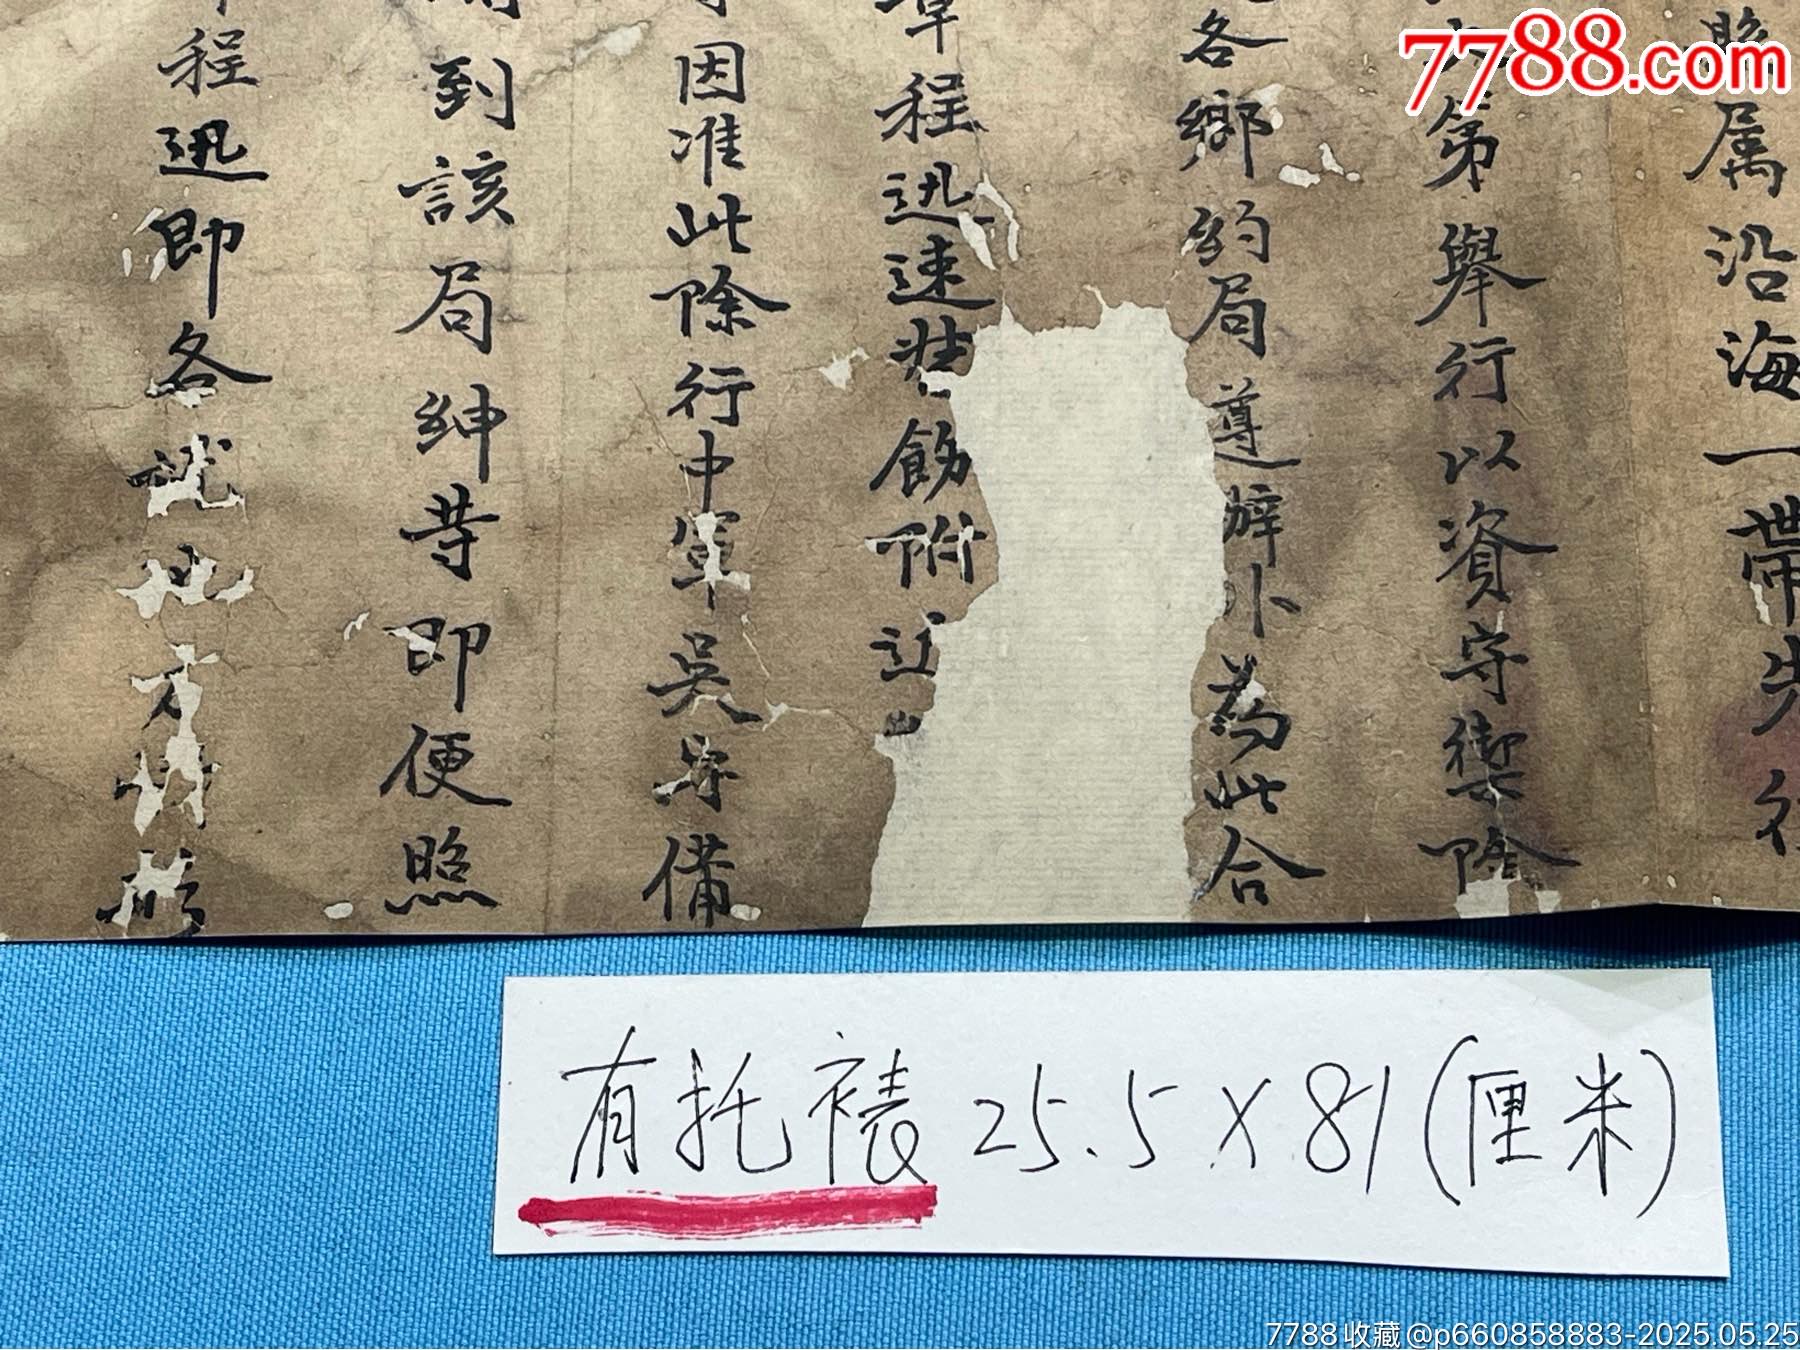 属沿海一帶先行
次第舉行以資守禦除
各鄉約局遵辦外為此合
章程迅速莊飭附近
因准此除行中軍吳守備
到該局紳等即便照
程迅即各就地方情形
有托裱25.5×81(厘米)
7788.com
7788收藏@p660858883-2025.05.25